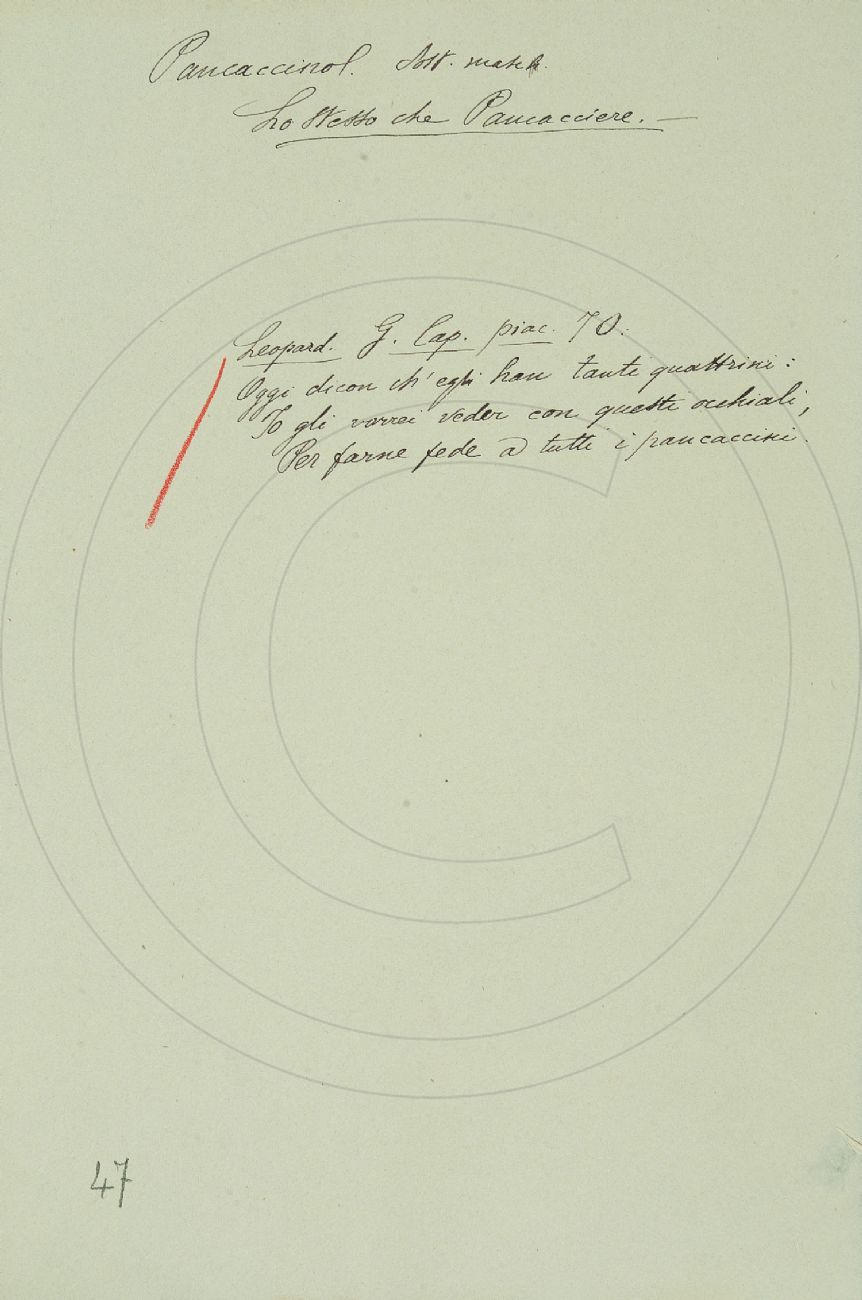 Pancaccino. Sost. masch.
Lo stesso che Pancacciere. —
Leopard. G. Cap. piac. 70.
Oggi dicon ch' egli han tanti quattrini:
Io gli vorrei veder con questi occhiali,
Per farne fede a tutti i pancaccini.
47